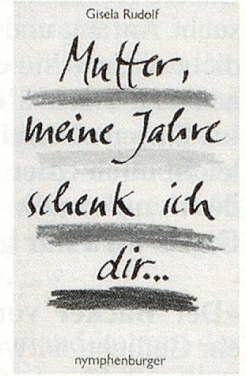 Gisela Rudolf
Mutter,
meine Jahre
schenk ich
dir...
nymphenburger